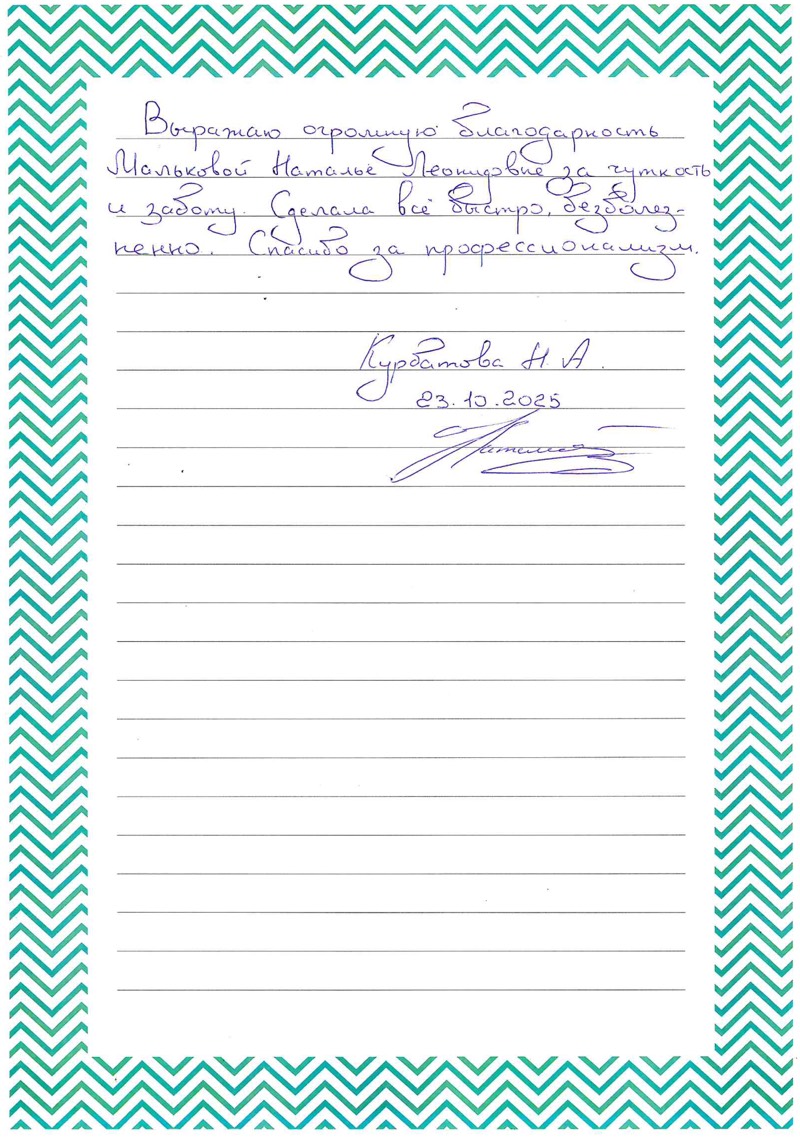 Выражаю огромную благодарность
Мальковой Наталье Леонидовне за чуткость
и заботу. Сделала всё быстро, безболез-
ненно. Спасибо за профессионализм.
Курбатова Н. А.
23.10.2025